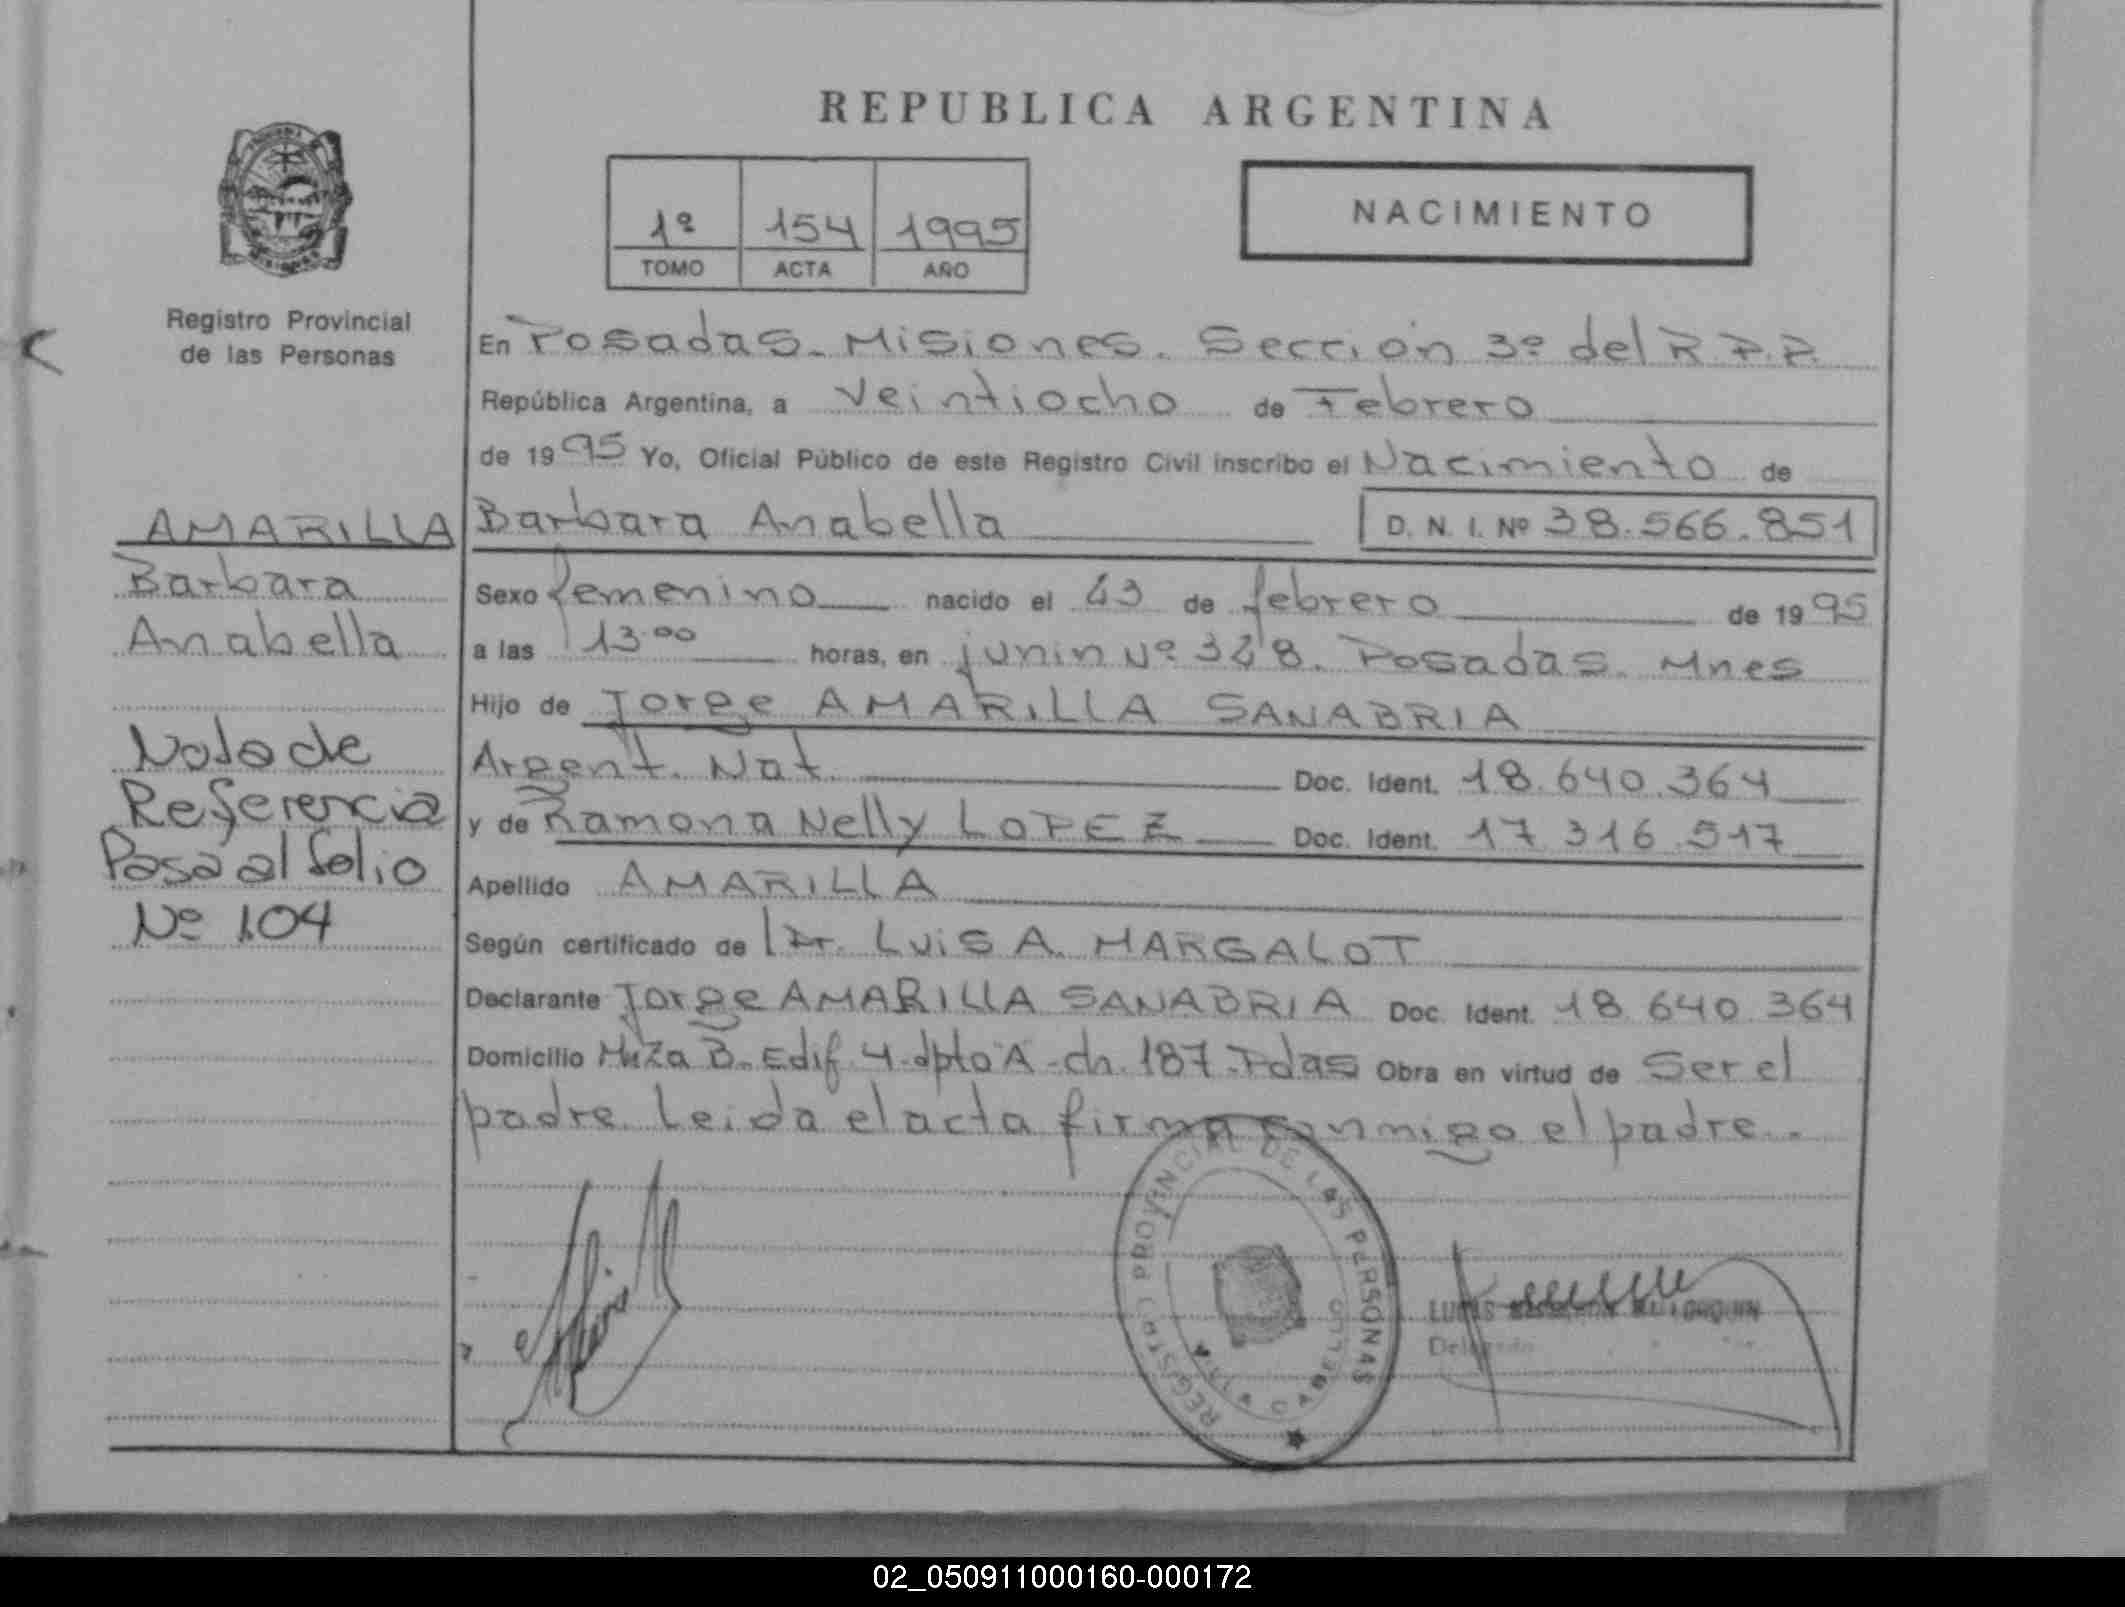 REPUBLICA ARGENTINA
1º 154 1995
TOMO ACTA AÑO
NACIMIENTO
Registro Provincial
de las Personas
En Posadas. Misiones. Sección 3º del R.P.P.
República Argentina, a veintiocho de Febrero
de 1995 Yo, Oficial Público de este Registro Civil inscribo el Nacimiento de
Barbara Anabella D. N. I. Nº 38.566.851
Sexo femenino nacido el de febrero de 1995
a las 13.00 horas, en junin Nº Posadas. Mnes
Hijo de Jorge AMARILLA SANABRIA
Argent. Nat. Doc. Ident. 18.640.364
y de Ramona Nelly LOPEZ Doc. Ident. 17 316 517
Apellido AMARILLA
Según certificado de Dr. LUIS A. MARGALOT
Declarante Jorge AMARILLA SANABRIA Doc. Ident. 18 640 364
Domicilio MnZa B. Edif 4. dpto A - ch. 187. Pdas Obra en virtud de Ser el
padre. Leida el acta firma conmigo el padre.
AMARILLA
Barbara
Anabella
Nota de
Referencia
Pasa al folio
Nº 104
REGISTRO PROVINCIAL DE LAS PERSONAS
VILLA CABELLO
LUCAS
Delegado
02_050911000160-000172